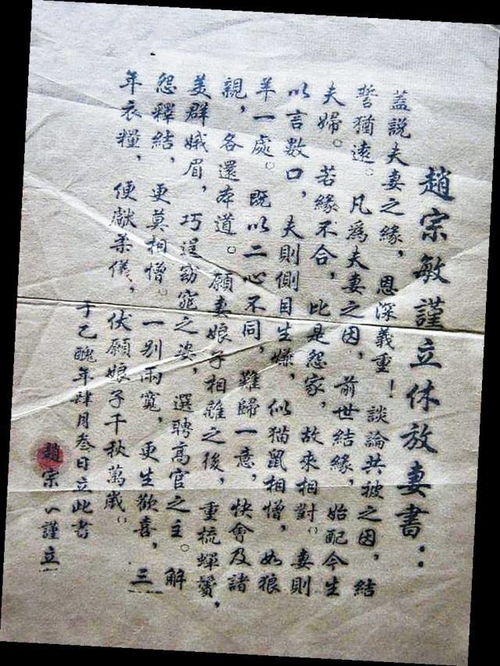 趙宗敏謹立休放妻書：
蓋説夫妻之緣，恩深義重！談論共被之因，結
誓猶遠。凡為夫妻之因，前世結緣，始配今生
夫婦。若緣不合，比是怨家，故來相對。妻則
以言數口，夫則側目生嫌，似猫鼠相憎，如狼
羊一處。既以二心不同，難歸一意，快會及諸
親，各還本道。願妻娘子相離之後，重梳蟬鬢，
美群娥眉，巧逞窈窕之姿，選聘高官之主。解
怨釋結，更莫相憎。一别兩寬，更生歡喜，三
年衣糧，便獻柔儀，伏願娘子千秋萬歲。
于乙醜年肆月叁日立此書
趙宗 謹立